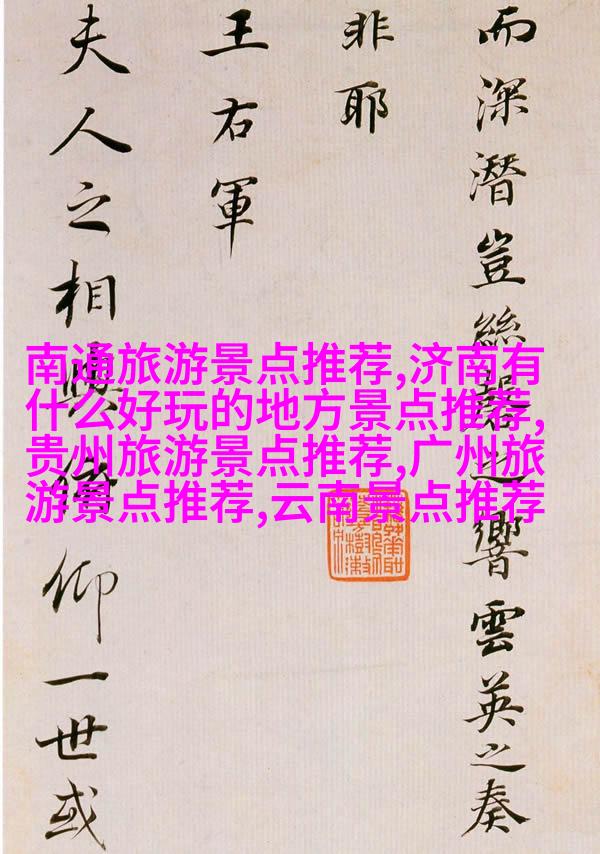 而深潛豈絲之響雲英之奏
非耶
王右軍
夫人之相與俯仰一世或
南通旅游景点推荐,济南有
什么好玩的地方景点推荐,
贵州旅游景点推荐,广州旅
游景点推荐,云南景点推荐